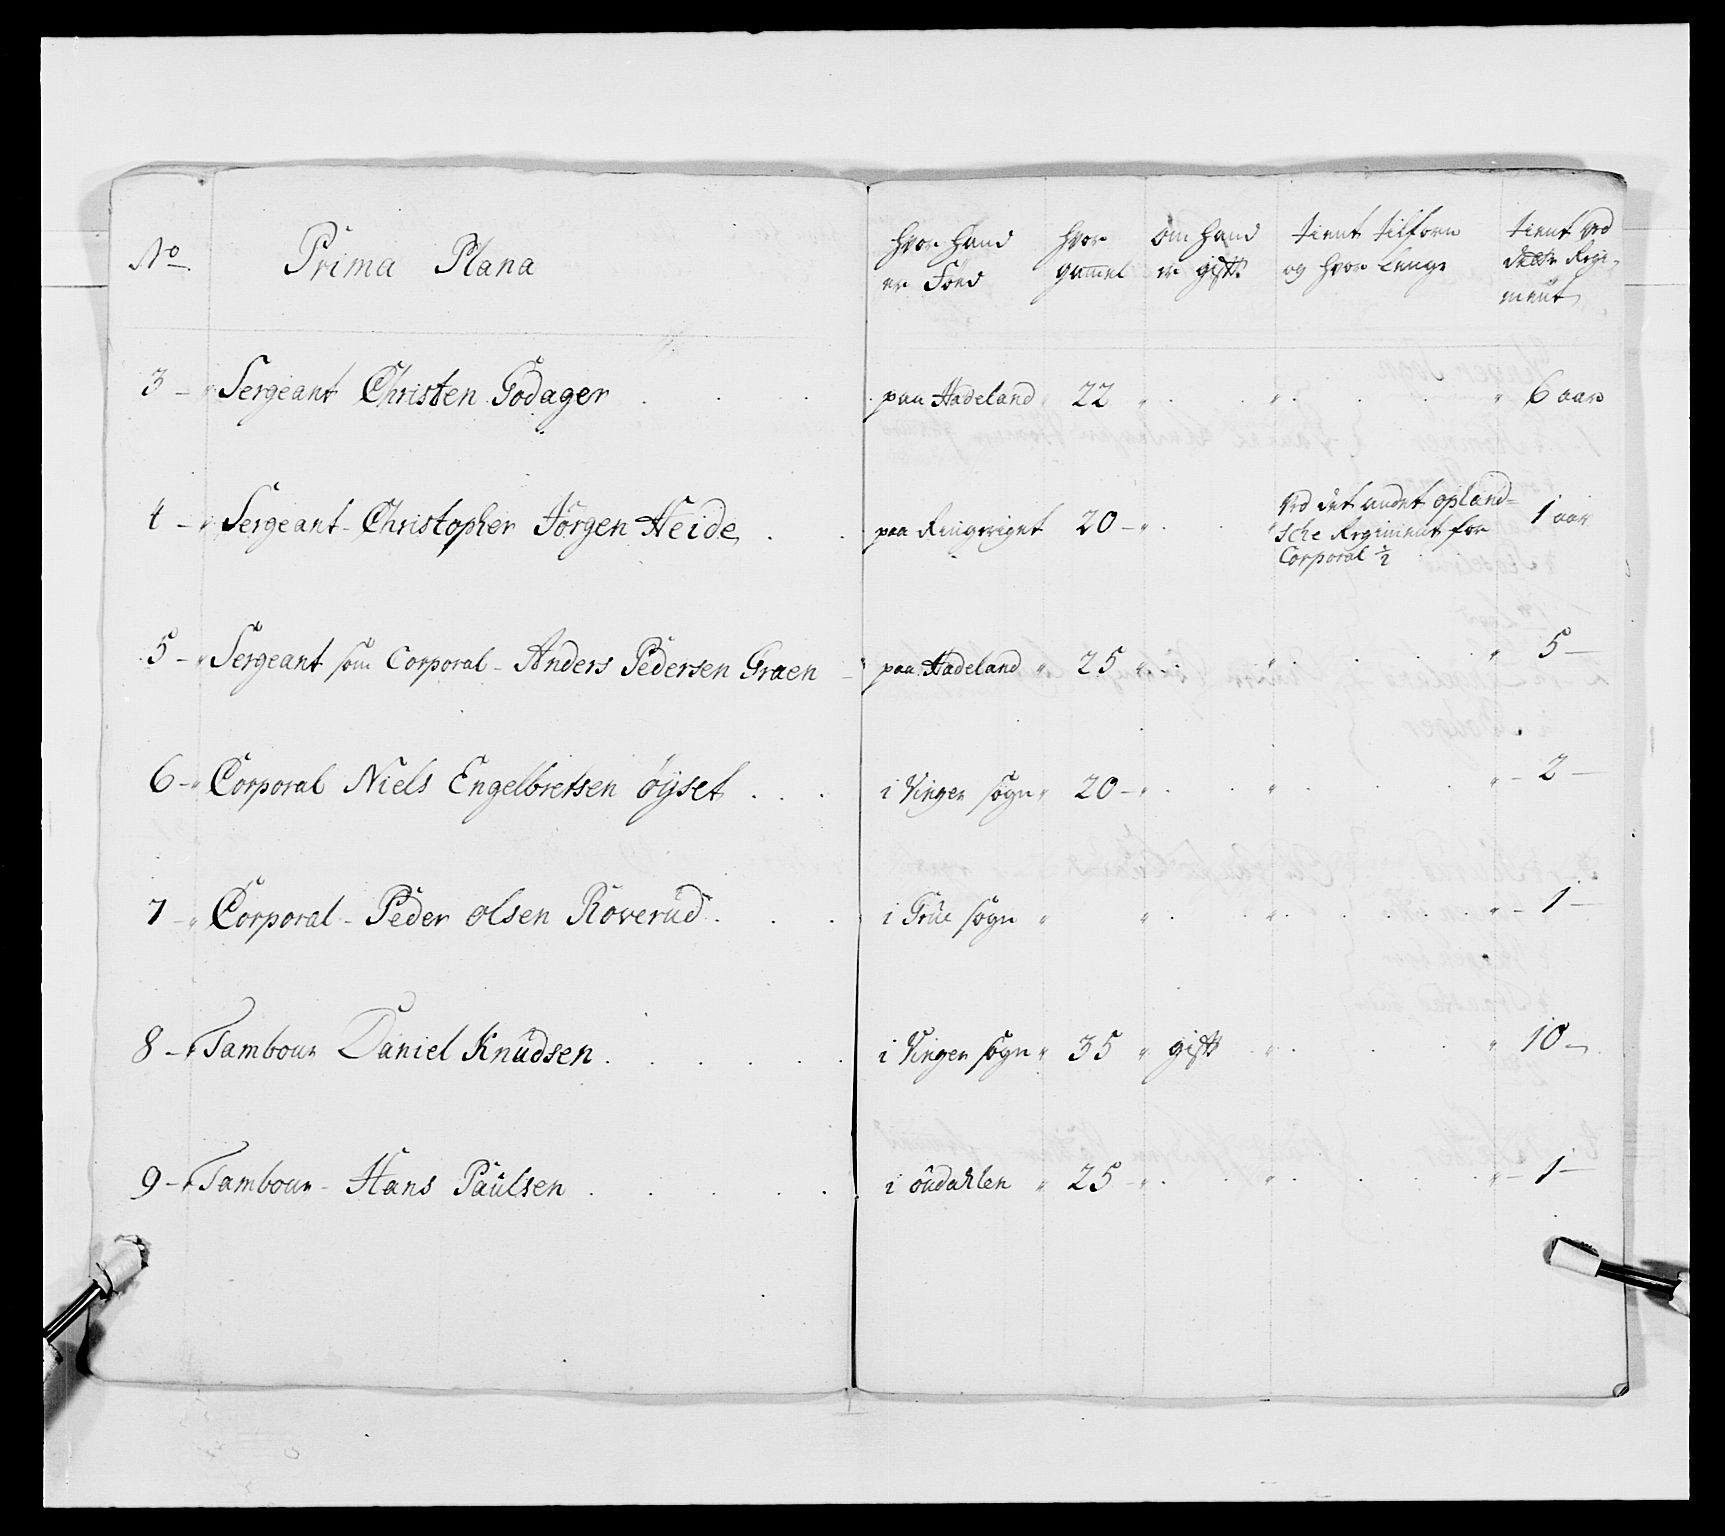 No Prima Plana hvor hand er Föed hvor gammel om hand er gift tient tilforn og hvor Lenge tient ved dette Regiment
3 Sergeant Christen Godager paa Hadeland 22 6 aar
4 Sergeant Christopher Jörgen Heide paa Ringeriget 20 ved det andet oplandsche Regiment for Corporal ½ 1 aar
5 Sergeant som Corporal Anders Pedersen Graen paa Hadeland 25 5
6 Corporal Niels Engelbretsen öÿset i Vinger sogn 20 2
7 Corporal Peder olsen Roverud i Grue sogn 1
8 Tambour Daniel Knudsen i Vinger sogn 35 gift 10
9 Tambour Hans Paulsen i oudahlen 25 1